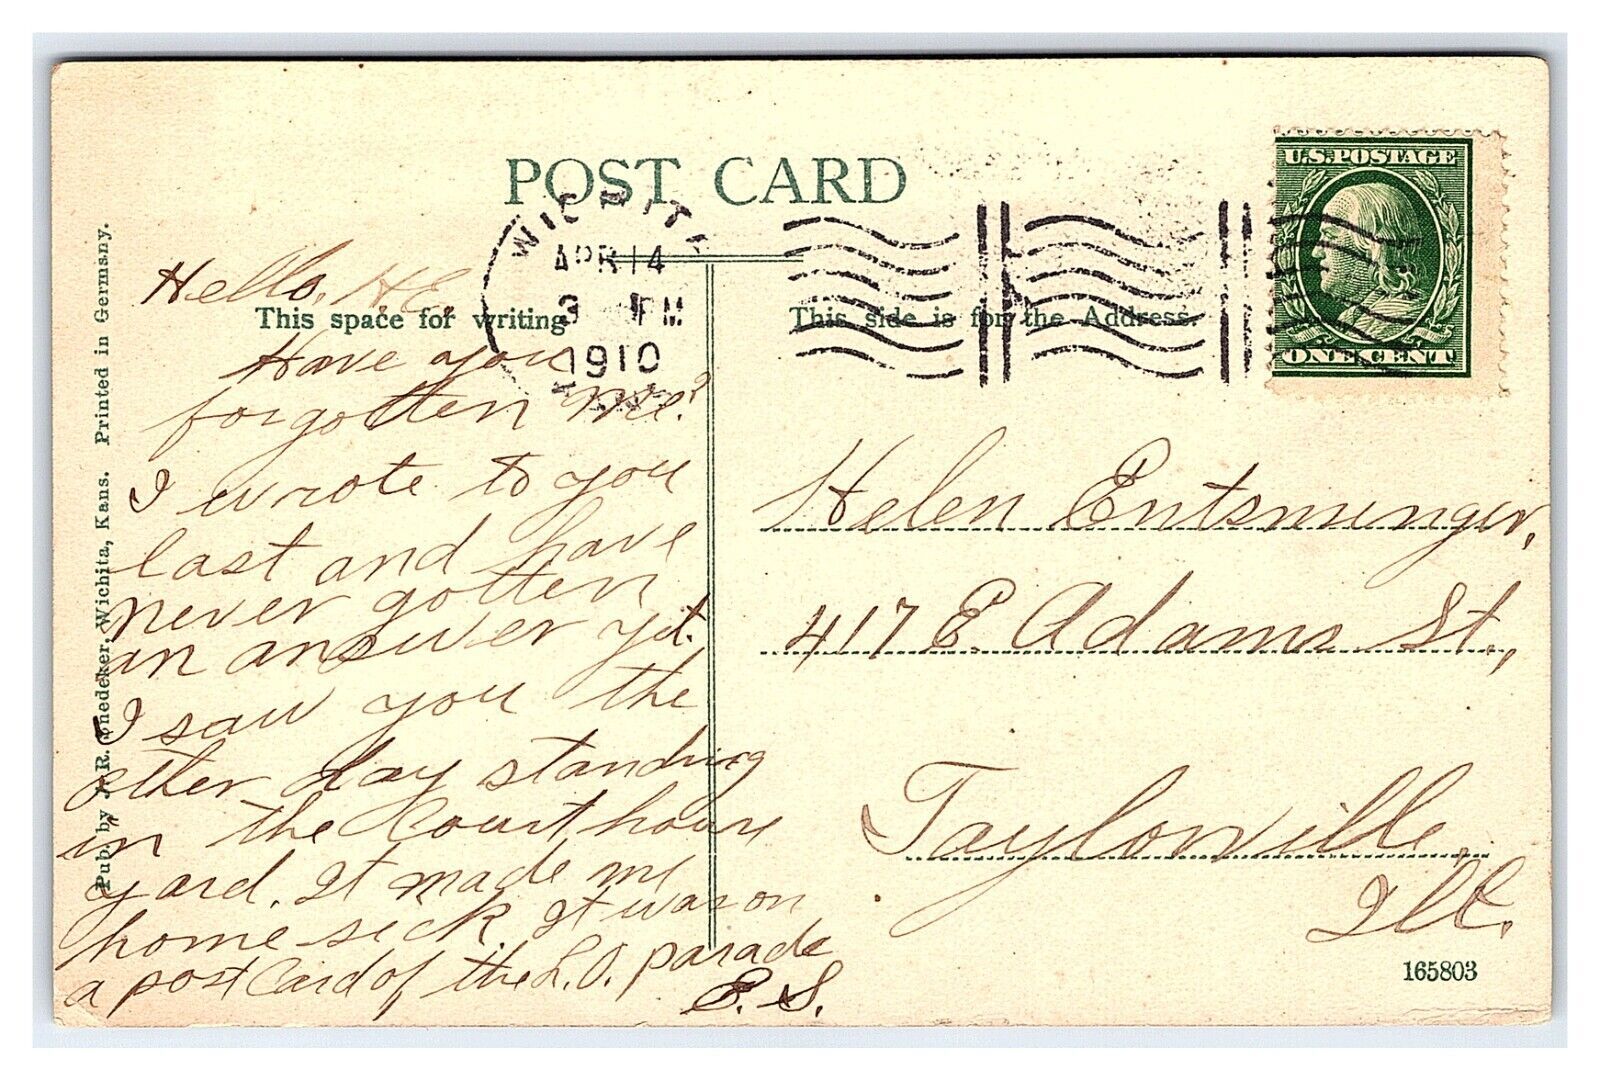 POST CARD
WICHITA
APR 14
3 PM
1910
U.S. POSTAGE
ONE CENT
This space for writing
This side is for the Address.
Hello, H.E.
Have you
forgotten me?
I wrote to you
last and have
never gotten
an answer yet.
I saw you the
other day standing
in the Court house
yard. It made me
home sick. It was on
a post Card of the L.O. parade
E. S.
Helen Entsminger,
417 E. Adams St.,
Taylorville,
Ill.
165803
Pub. by J. R. Snedeker, Wichita, Kans. Printed in Germany.